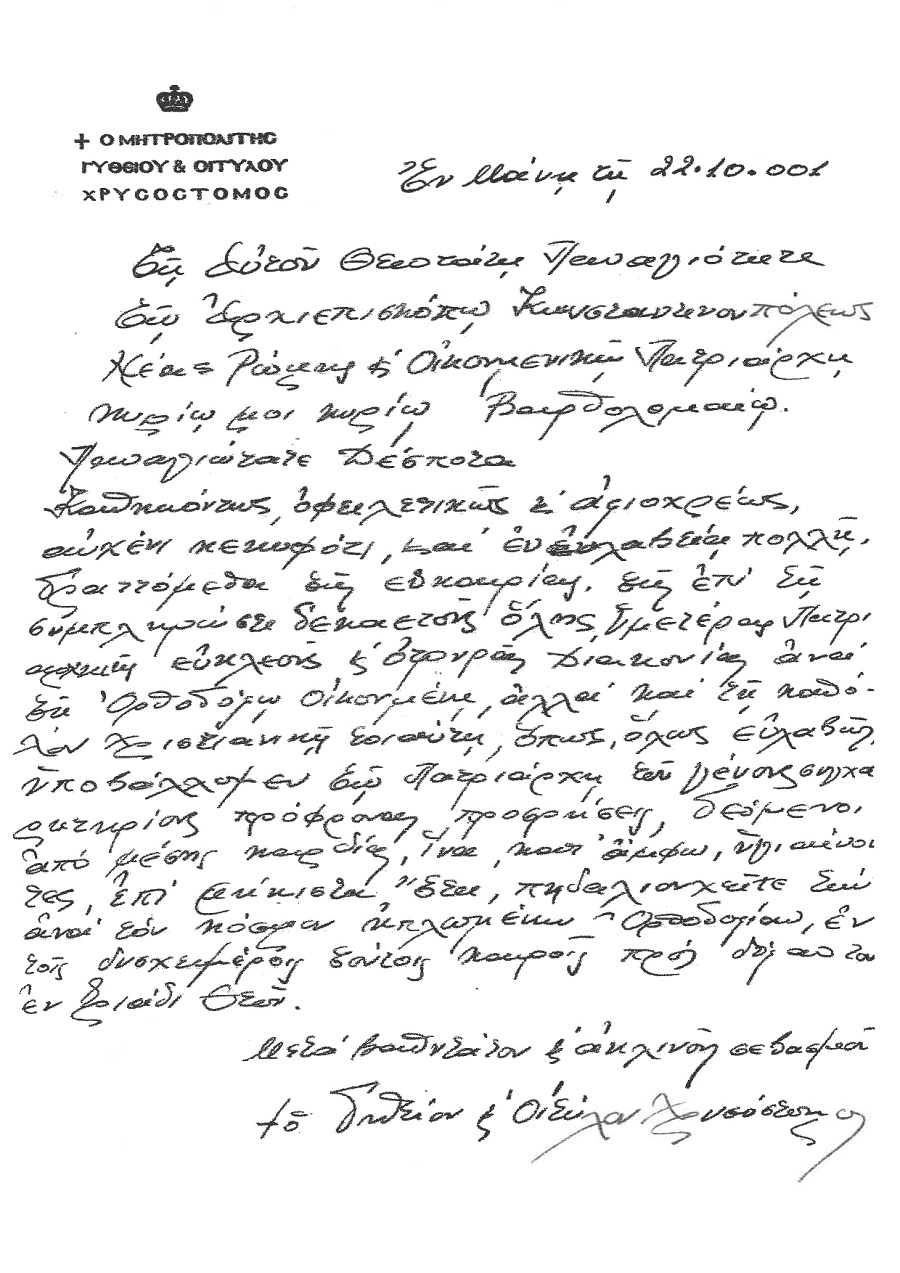 + Ο ΜΗΤΡΟΠΟΛΙΤΗС
ΓΥΘΕΙΟΥ & ΟΙΤΥΛΟΥ
ΧΡΥСΟСΤΟΜΟС
Ἐν Μάνῃ τῇ 22.10.001
Τῇ Αὐτοῦ Θειοτάτῃ Παναγιότητι
Τῷ Ἀρχιεπισκόπῳ Κωνσταντινουπόλεως
Νέας Ρώμης & Οἰκουμενικῷ Πατριάρχῃ
κυρίῳ μοι κυρίῳ Βαρθολομαίῳ.
Παναγιώτατε Δέσποτα
Καθηκόντως, ὀφειλετικῶς & ἀξιοχρέως,
αὐχένι κεκυφότι, καί ἐν εὐλαβείᾳ πολλῇ,
δραττόμεθα τῆς εὐκαιρίας, τῆς ἐπί τῇ
συμπληρώσει δεκαετοῦς ὅλης Ὑμετέρας Πατρι
αρχικῆς εὐκλεοῦς & ὀτρηρᾶς Διακονίας ἀνά
τῇ Ὀρθοδόξῳ Οἰκουμένῃ, ἀλλά καί τῇ καθό-
λου Χριστιανικῇ τοιαύτῃ, ὅπως, ὅλως εὐλαβῶς,
ὑποβάλλομεν τῷ Πατριάρχῃ τοῦ Γένους συγχα
ρητηρίους πρόφρονας προσρήσεις, δεόμενοι
ἀπό μέσης καρδίας, ἵνα, κατ' ἄμφω, ὑγιαίνον
τες, ἐπί μήκιστα ἔτεα, πηδαλιουχεῖτε τήν
ἀνά τόν κόσμον ἡπλωμένην Ὀρθοδοξίαν, ἐν
τοῖς δυσχειμέροις τούτοις καιροῖς πρός δόξαν τοῦ
ἐν Τριάδι Θεοῦ.
Μετά βαθυτάτου & ἀκλινοῦς σεβασμοῦ
+ ὁ Γυθείου & Οἰτύλου Χρυσόστομος